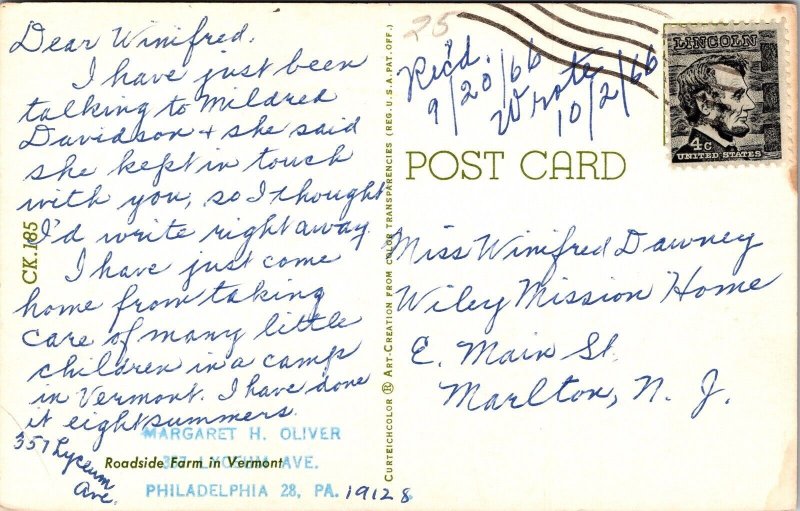 Dear Winifred,
I have just been
talking to Mildred
Davidson + she said
she kept in touch
with you, so I thought
I'd write right away.
I have just come
home from taking
care of many little
children in a camp
in Vermont. I have done
it eight summers.
357 Lyceum
Ave.
MARGARET H. OLIVER
Roadside Farm in Vermont
357 LYCEUM AVE.
PHILADELPHIA 28, PA. 19128
CK.185
CURTEICHCOLOR ® ART-CREATION FROM COLOR TRANSPARENCIES (REG. U.S.A. PAT. OFF.)
25
Rec'd.
9/20/66
Wrote
10/2/66
LINCOLN
4c
UNITED STATES
POST CARD
Miss Winifred Dawney
Wiley Mission Home
E. Main St.
Marlton, N. J.